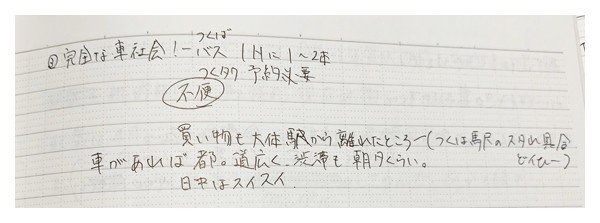 ③完全な車社会！ーつくば
バス 1Hに1〜2本
つくタク 予約必要
不便
買い物も大体駅から離れたところー(つくば駅のスタれ具合
どイヒー)
車があれば都。道広く、渋滞も朝夕くらい。
日中はスイスイ